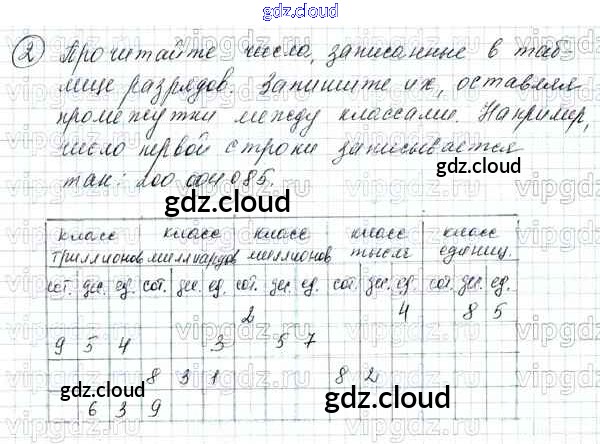 gdz.cloud
2 Прочитайте числа, записанные в таб-
лице разрядов. Запишите их, оставляя
промежутки между классами. Например,
число первой строки записывается
gdz.cloud
так: 200 004 085.
gdz.cloud
класс класс класс класс класс
триллионов миллиардов миллионов тысяч единиц.
сот. дес. ед. сот. дес. ед. сот. дес. ед. сот. дес. ед. сот. дес. ед.
2 4 8 5
9 5 4 3 5 7
8 3 1 8 2
gdz.cloud gdz.cloud
6 3 9